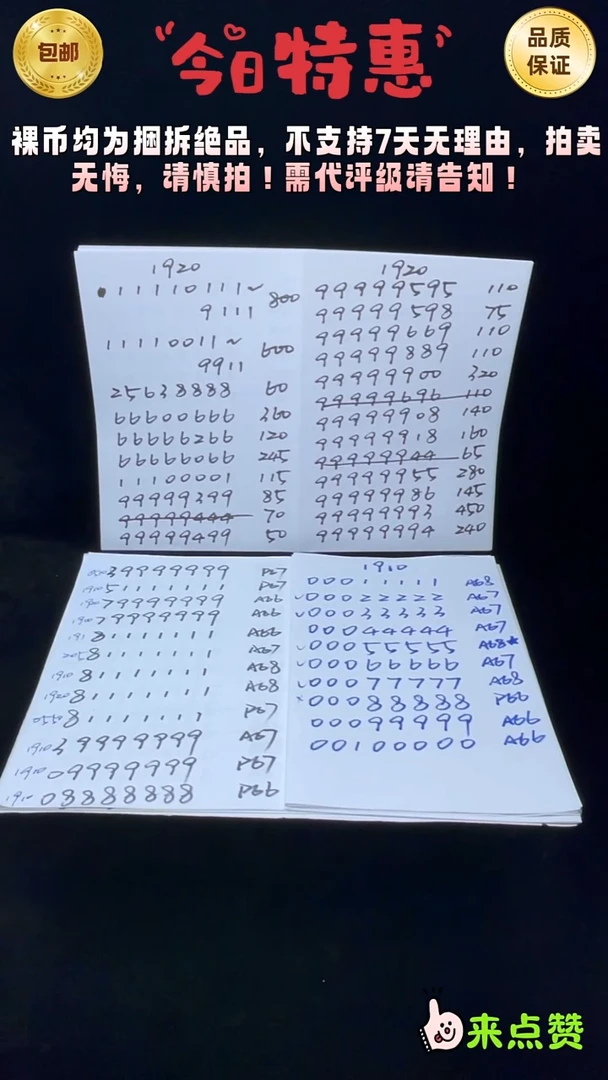 包邮
今日特惠
品质
保证
裸币均为捆拆绝品，不支持7天无理由，拍卖
无悔，请慎拍！需代评级请告知！
1920
11110111~
9111 800
11110011~ 600
9911
25638888 60
66600666 360
66666266 120
66666066 245
11100001 115
99999399 85
99999444 70
99999499 50
1920
99999595 110
99999598 75
99999669 110
99999889 110
99999900 320
99999696 110
99999908 140
99999918 160
99999944 65
99999955 280
99999986 145
99999993 450
99999994 240
39999999 P67
51111111 P67
79999999 A66
79999999 A66
21111111 A66
2058111111 A67
1910 81111111 A68
1920 81111111 A68
0520 81111111 P67
1910 39999999 A67
1910 09999999 P67
1910 08888888 P66
1910
00011111 A68
00022222 A67
00033333 A67
00044444 A67
00055555 A68★
00066666 A67
00077777 A68
00088888 P66
00099999 A66
00100000 A66
来点赞